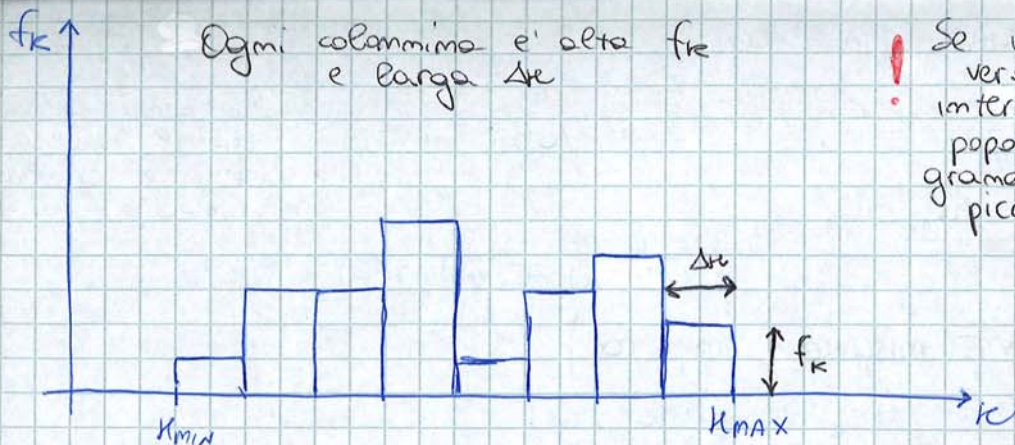 fₖ
Ogni colonnina e' alta fₖ
e larga Δx
! Se
ver
inter
popo
grand
picc
Δx
fₖ
x
xMIN
xMAX